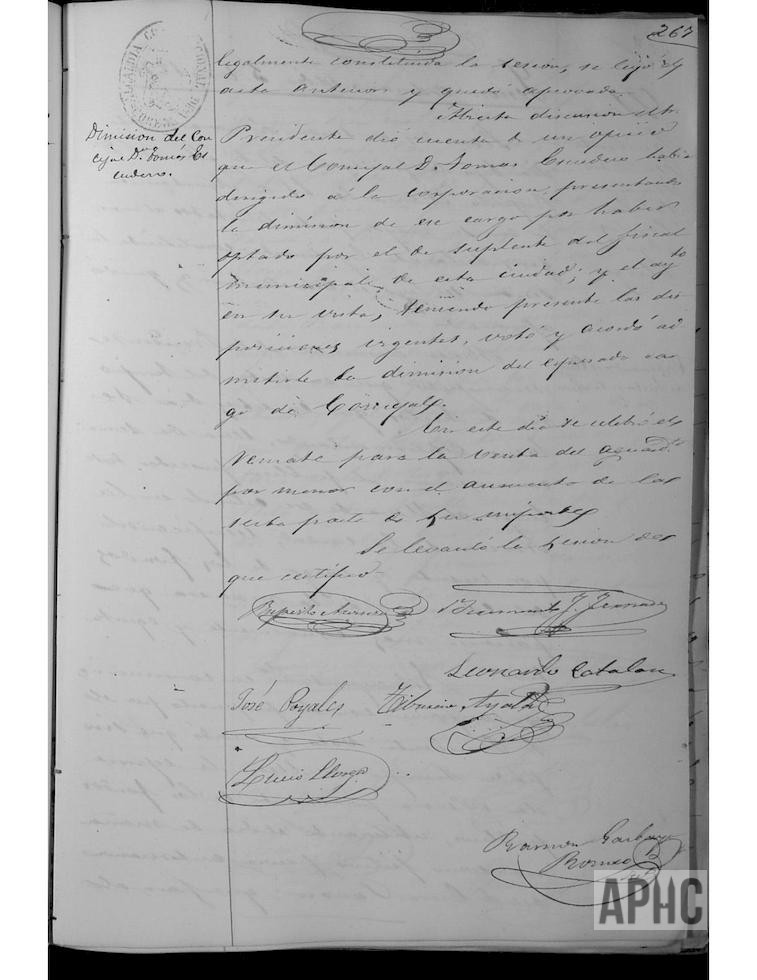 267
legalmente constituida la sesion, se leyó el
acta anterior y quedó aprovada.
Abierta discusion el Sr.
Dimision del Con
cejal Dn. Tomás Es
cudero.
Presidente dió cuenta de un oficio
que el Concejal D. Tomas Escudero habia
dirigido á la corporacion, presentando
la dimision de ese cargo por haber
optado por el de suplente del fiscal
municipal de esta ciudad; y el ayto
en su vista, teniendo presente las dis
posiciones vigentes, votó y acordó ad
mitirle la dimision del espresado car
go de Concejal.
En este dia se celebró el
remate para la venta del aguardte
por menor con el aumento de la
sesta parte de su importe
Se levantó la sesion de
que certifico
Ruperto
Leonardo Catalan
José Poyales Tiburcio Ayala
Lucio Llorga
Ramon
Romeo
APHC